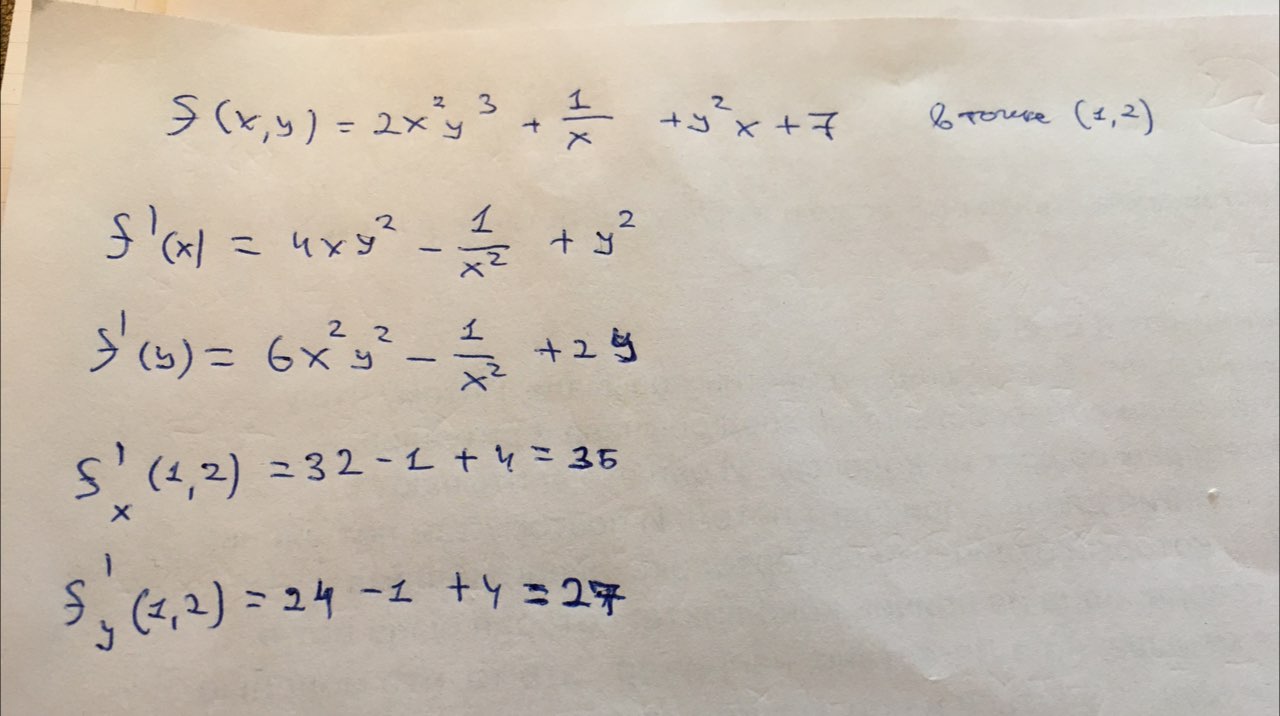 f(x,y) = 2x²y³ + 1/x + y²x + 7 в точке (1,2)
f'(x) = 4xy² - 1/x² + y²
f'(y) = 6x²y² - 1/x² + 2y
f'x (1,2) = 32 - 1 + 4 = 35
f'y (1,2) = 24 - 1 + 4 = 27